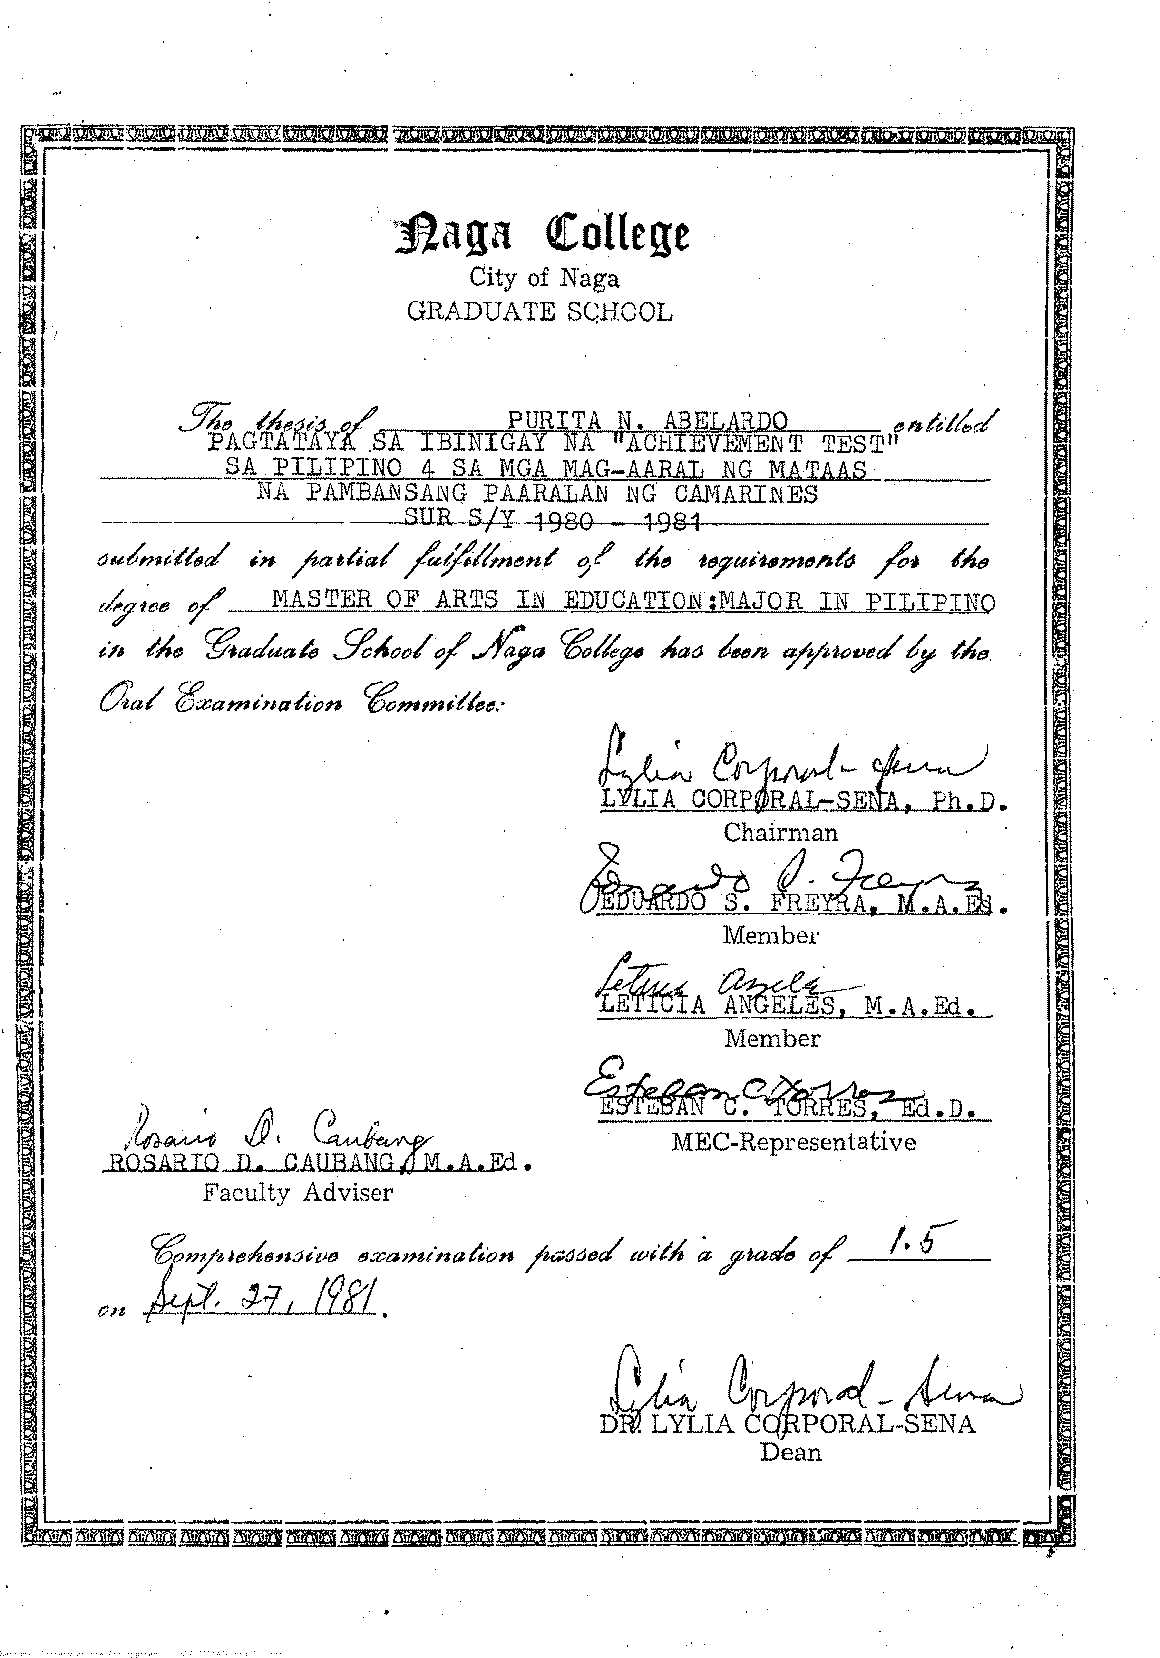 Naga College
City of Naga
GRADUATE SCHOOL
The thesis of PURITA N. ABELARDO entitled
PAGTATAYA SA IBINIGAY NA "ACHIEVEMENT TEST"
SA PILIPINO 4 SA MGA MAG-AARAL NG MATAAS
NA PAMBANSANG PAARALAN NG CAMARINES
SUR S/Y 1980 - 1981
submitted in partial fulfillment of the requirements for the
degree of MASTER OF ARTS IN EDUCATION:MAJOR IN PILIPINO
in the Graduate School of Naga College has been approved by the
Oral Examination Committee:
Lylia Corporal-Sena
LYLIA CORPORAL-SENA, Ph.D.
Chairman
Eduardo S. Freyra
EDUARDO S. FREYRA, M.A.Ed.
Member
Leticia Angeles
LETICIA ANGELES, M.A.Ed.
Member
Esteban C. Torres
ESTEBAN C. TORRES, Ed.D.
MEC-Representative
Rosario D. Caubang
ROSARIO D. CAUBANG, M.A.Ed.
Faculty Adviser
Comprehensive examination passed with a grade of 1.5
on Sept. 27, 1981.
Lylia Corporal-Sena
DR. LYLIA CORPORAL-SENA
Dean